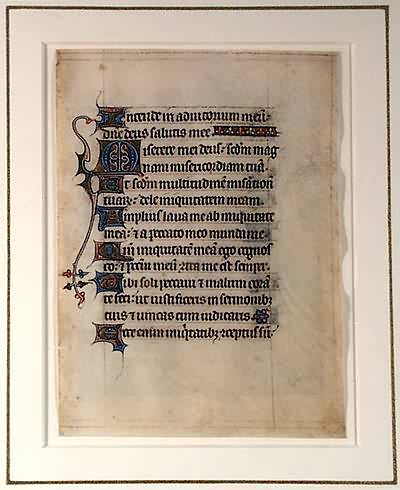 Intende in adiutorium meū
dne deus salutis mee
Miserere mei deus scdm mag
nam misericordiam tuā
Et scdm multitudinē misation
tuarꝫ dele iniquitatem meam
Amplius laua me ab iniquitate
mea ⁊ a peccato meo munda me
Qm̄ iniquitatē meā ego cognos
co ⁊ pccm̄ meū ⁊tra me est semper
Tibi soli peccaui ⁊ malum corā
te feci ut iustificeris in sermonibꝫ
tuis ⁊ uincas cum iudicaris
Ecce enim iniqͥtatibꝫ ⁊ceptus sū